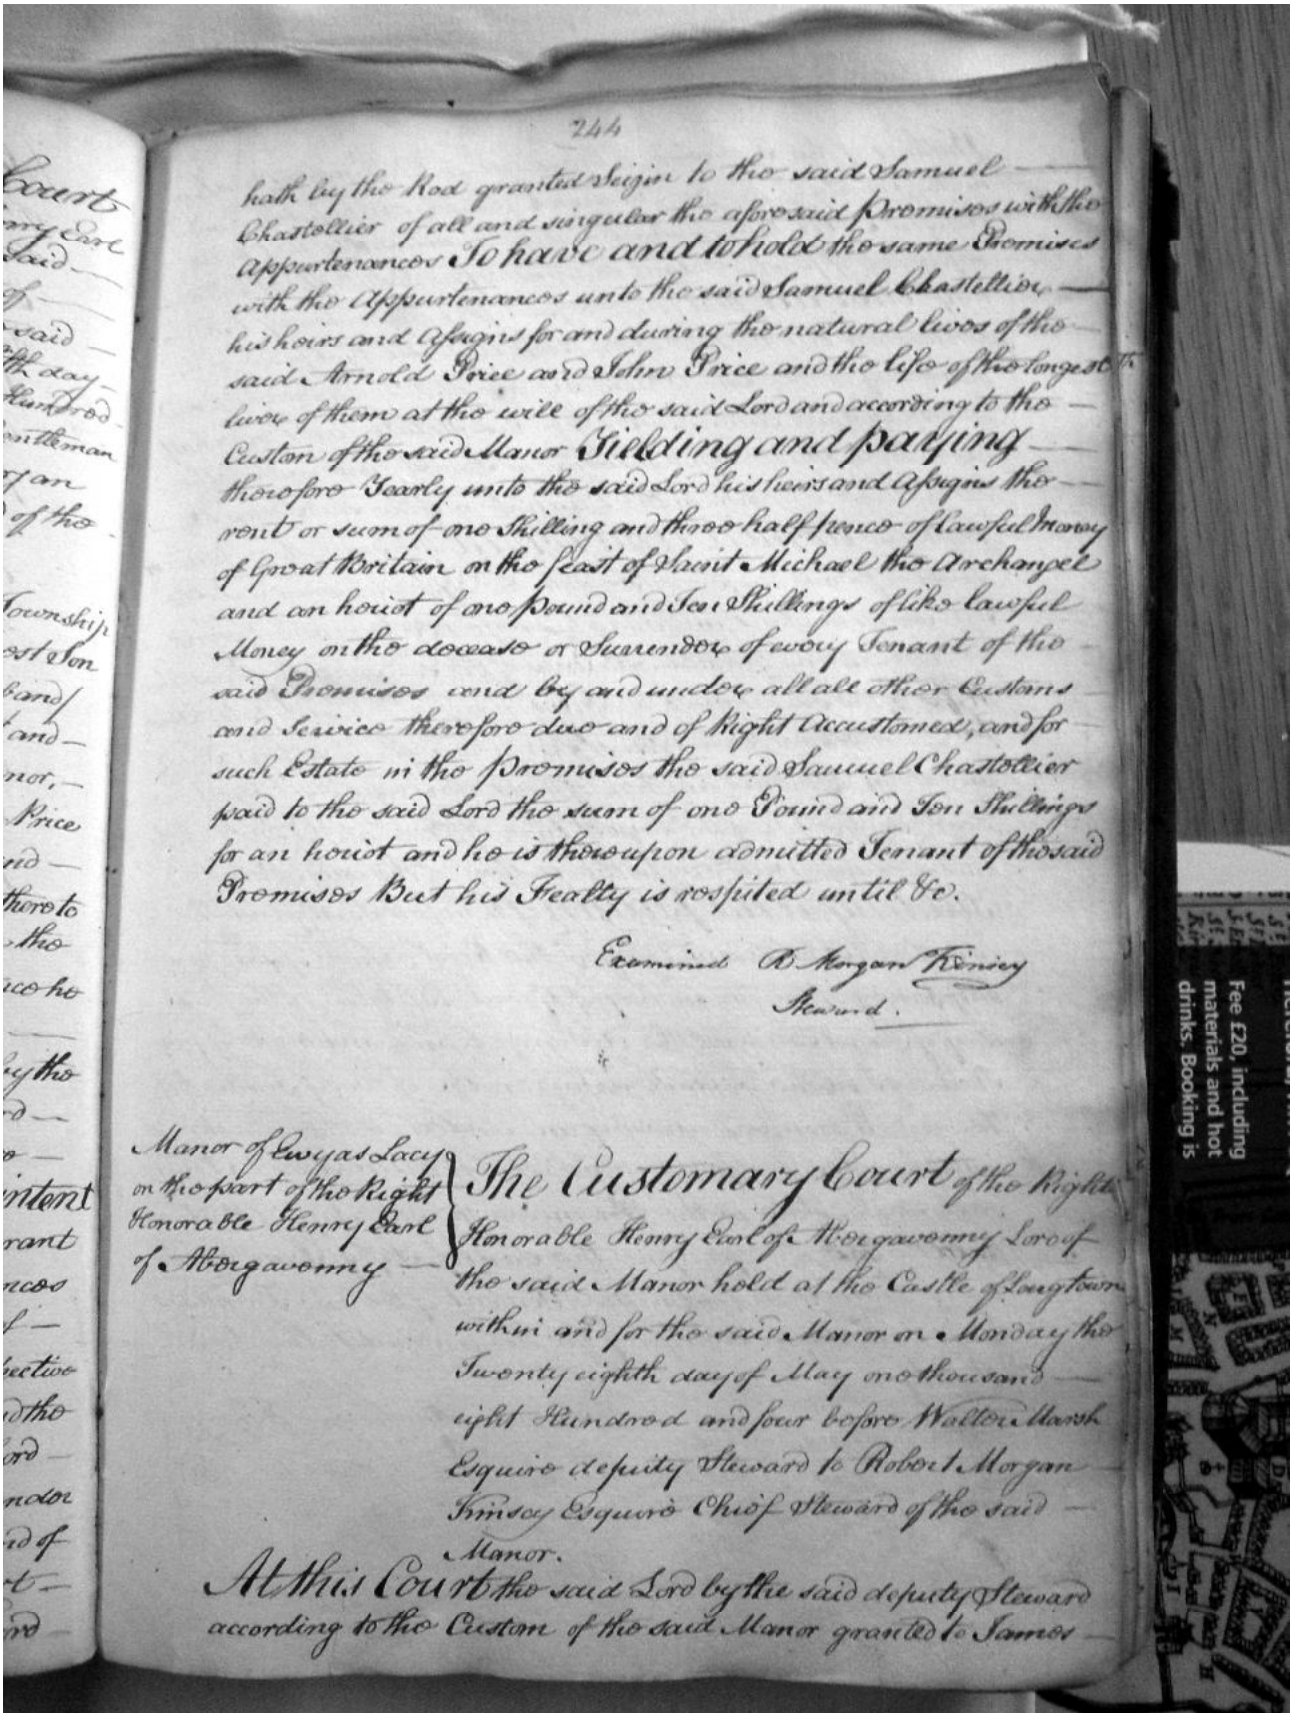 Court
Henry Earl
Said
of
said
day
Hundred
Gentleman
an
of the
Township
Son
and
nor,
Price
thereto
the
he
by the
intent
the
of
244
hath by the Rod granted Seizin to the said Samuel
Chastellier of all and singular the aforesaid Premises with the
Appurtenances To have and to hold the same Premises
with the Appurtenances unto the said Samuel Chastellier
his heirs and Assigns for and during the natural lives of the
said Arnold Price and John Price and the life of the longest
liver of them at the will of the said Lord and according to the
Custom of the said Manor Yielding and paying
therefore Yearly unto the said Lord his heirs and Assigns the
rent or sum of one Shilling and three half pence of lawful Money
of Great Britain on the feast of Saint Michael the Archangel
and an heriot of one Pound and Ten Shillings of like lawful
Money on the decease or Surrender of every Tenant of the
said Premises and by and under all all other Customs
and Service therefore due and of Right Accustomed, and for
such Estate in the Premises the said Samuel Chastellier
paid to the said Lord the sum of one Pound and Ten Shillings
for an heriot and he is thereupon admitted Tenant of the said
Premises But his Fealty is respited until &c.
Examined R Morgan Kinsey
Steward.
Manor of Ewyas Lacy
on the part of the Right
Honorable Henry Earl
of Abergavenny
The Customary Court of the Right
Honorable Henry Earl of Abergavenny Lord of
the said Manor held at the Castle of Longtown
within and for the said Manor on Monday the
Twenty eighth day of May one thousand
eight Hundred and four before Walter Marsh
Esquire deputy Steward to Robert Morgan
Kinsey Esquire Chief Steward of the said
Manor.
At this Court the said Lord by the said deputy Steward
according to the Custom of the said Manor granted to James
Fee £20, including
materials and hot
drinks. Booking is